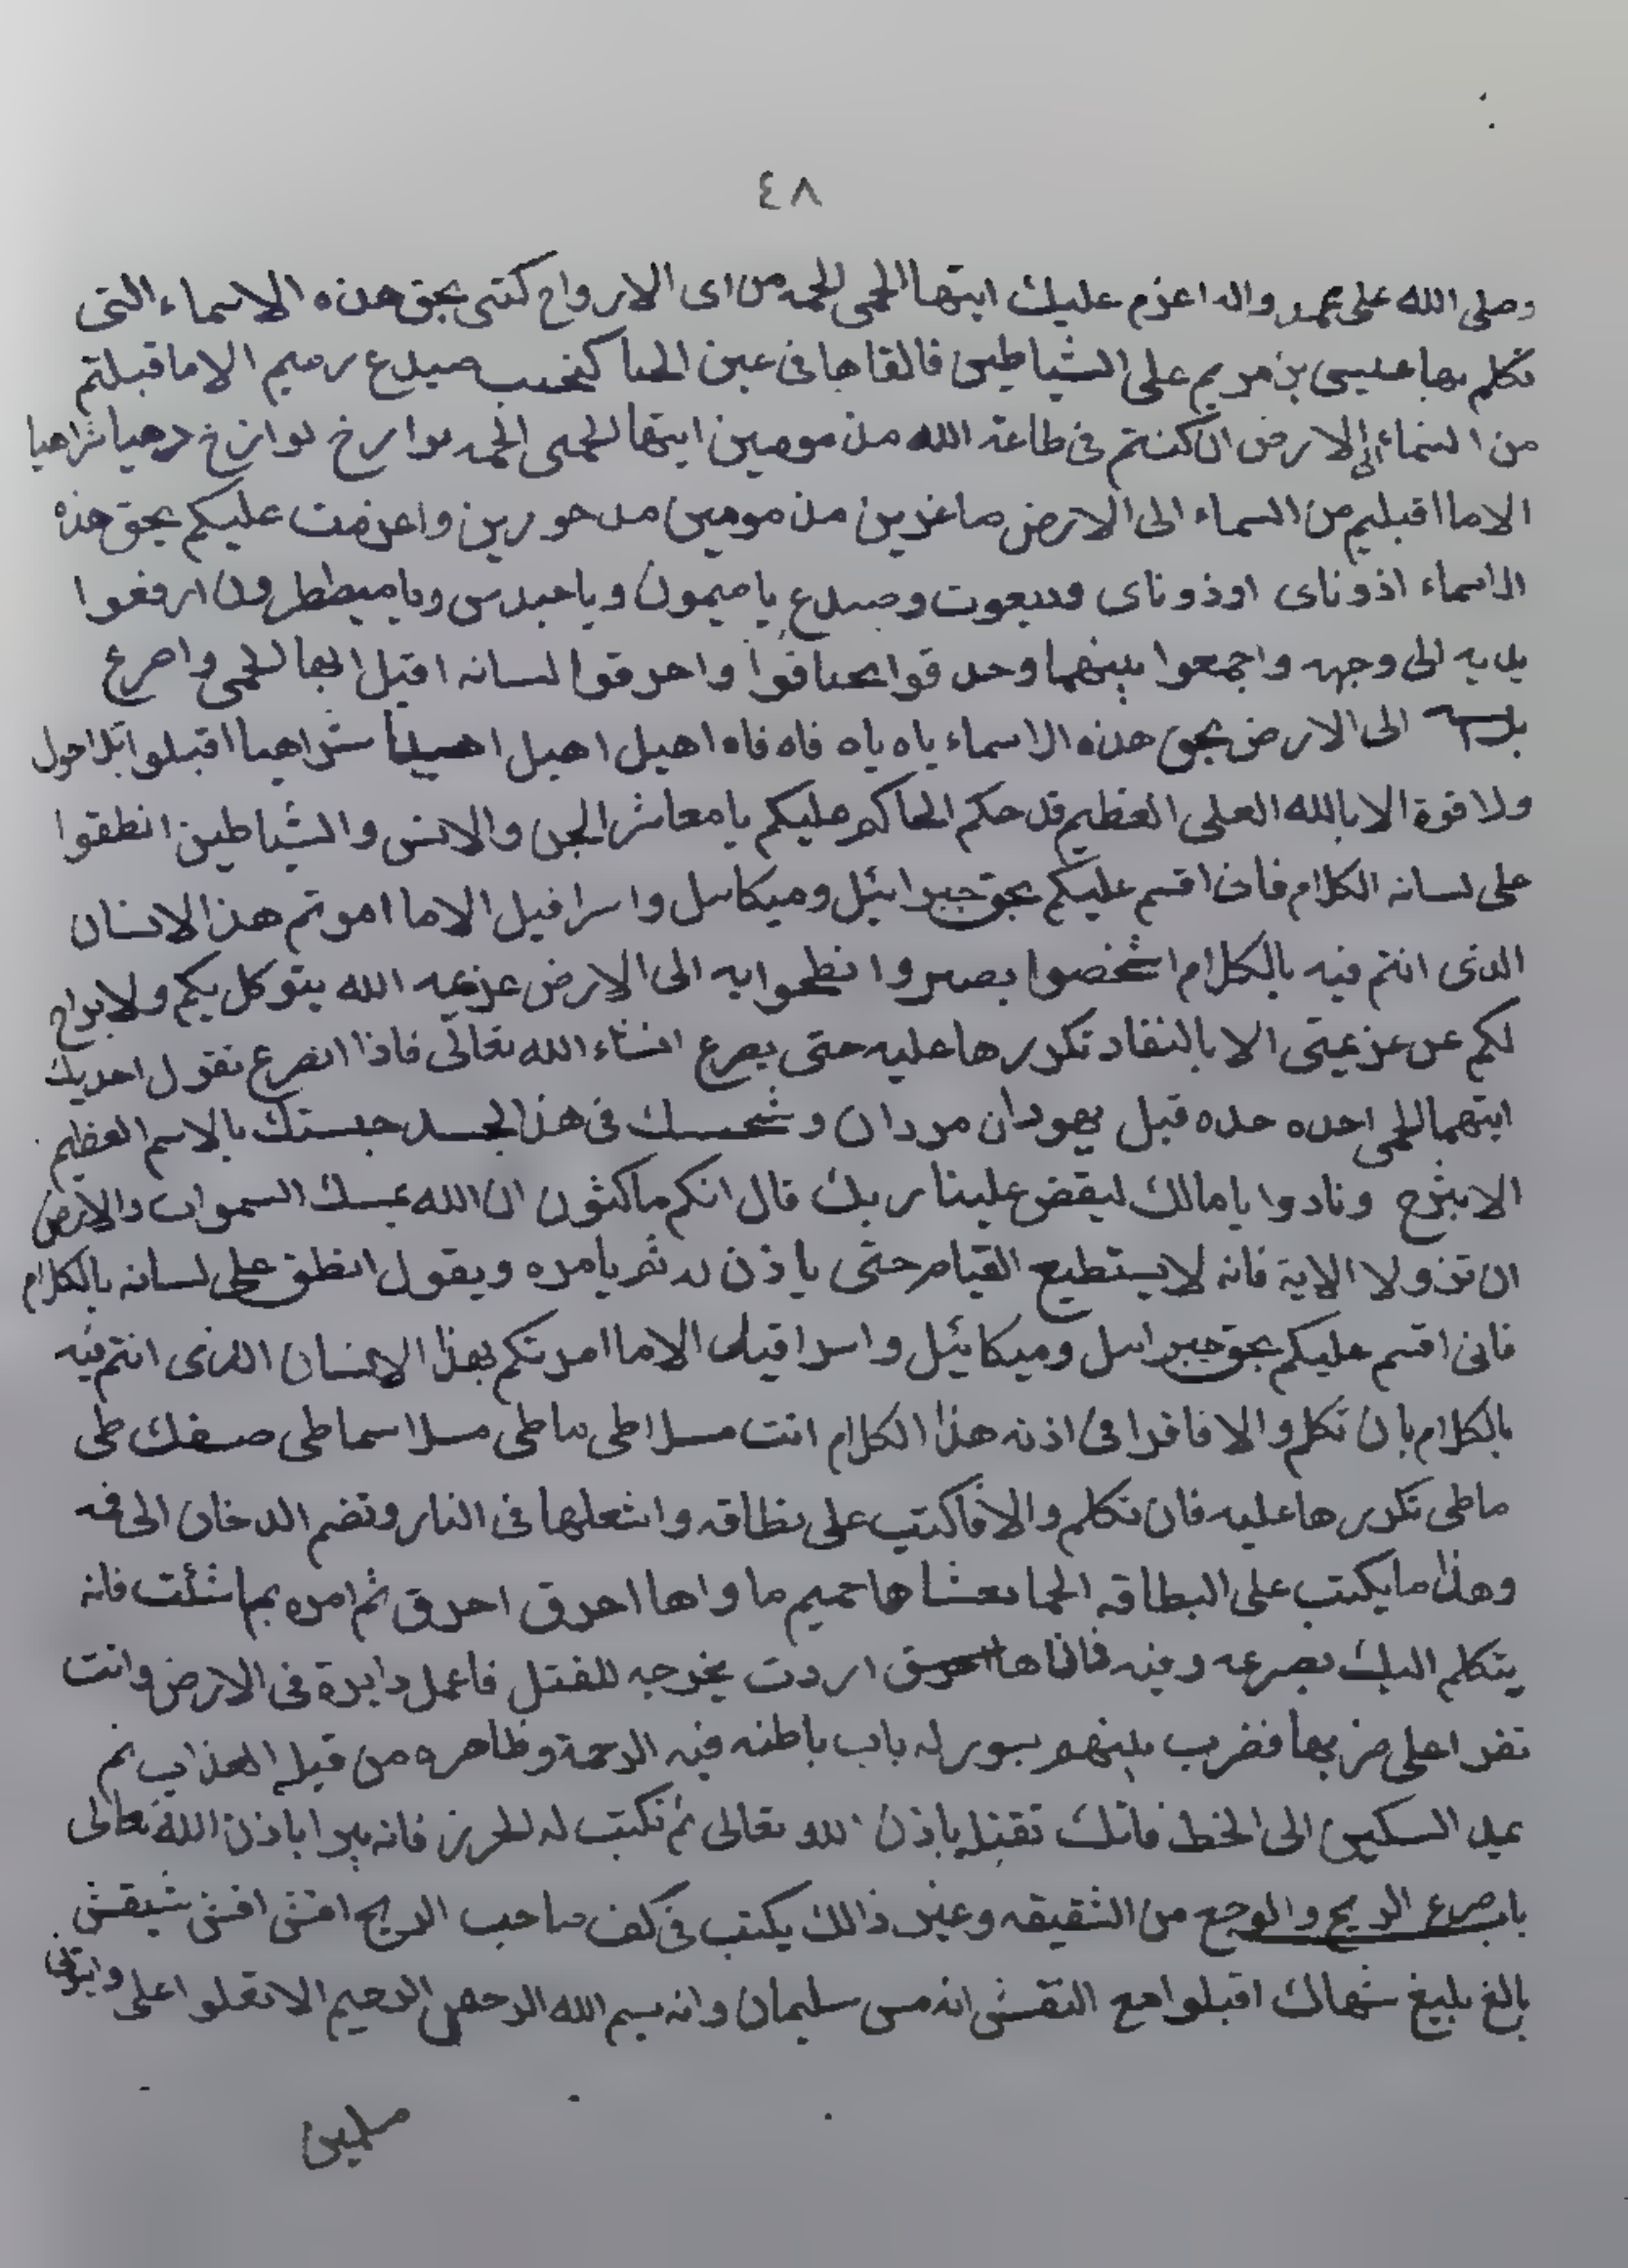 ٤٨
وصلى الله على محمد واله اعزم عليك ايتها الحمى من اى الارواح كنتى بحق هذه الاسماء التى
تكلم بها عيسى بن مريم على الشياطين فالقاها فى عين صيدع رميم الا ما قبلتم
من السماء الى الارض ان كنتم فى طاعة الله مذمومين ايتها الحمى
الا ما اقبليم من السماء الى الارض صاغرين مذمومين مدحورين واعزمت عليكم بحق هذه
الاسماء اذوناى اوذوناى وصيدع يا ميمون ويا ميططرون ارفعوا
يديه الى وجهه واجمعوا بينهما وحدقوا واحرقوا لسانه اقبل ايها الحمى واصرع
الى الارض بحق هذه الاسماء ياه ياه فاه فاه اهيل اهيل شراهيا اقبلوا بلا حول
ولا قوة الا بالله العلى العظيم قد حكم الحاكم عليكم يا معاشر الجن والانس والشياطين انطقوا
على لسانه الكلام فانى اقسم عليكم بحق جبرائيل وميكاىىل واسرافيل الا ما امرتم هذا الانسان
الذى انتم فيه بالكلام اشخصوا بصره وا نطحوا به الى الارض عزيمه الله يتوكل بكم ولا براح
لكم عن عزيمتى الا بالنفاد تكررها عليه حتى يصرع انشاء الله تعالى فاذا انصرع تقول
ايتها الحمى فى هذا الجسد حبستك بالاسم العظيم
ونادوا يا مالك ليقض علينا ربك قال انكم ماكثون ان الله يمسك السموات والارض
ان تزولا الاية فانه لا يستطيع القيام حتى ياذن له ثم يامره ويقول انطق على لسانه بالكلام
فانى اقسم عليكم بحق جبراىىل وميكائيل واسرافيل الا ما امرتكم بهذا الانسان الذى انتم فيه
بالكلام بان تكلم والا فاقرا فى اذنه هذا الكلام انت طى
ماطى تكررها عليه فان تكلم والا فاكتب على بطاقه واشعلها فى النار وتضم الدخان الى فمه
وهذا ما يكتب على البطاقه ها حميم ما واها احرق احرق ثم امره بما شئت فانه
يتكلم اليك بصرعه اردت يخرجه للقتل فاعمل دايرة فى الارض وانت
تقرا على ضربها فضرب بينهم بسور له باب باطنه فيه الرحمة وظاهره من قبله العذاب ثم
السكين الى الخط فانك تقتله باذن الله تعالى ثم تكتب له الحرز فانه يبرا باذن الله تعالى
باب صرع الريح والوجع من الشقيقه وغير ذالك يكتب فى كف صاحب الريح اقشى اقشى شيقشى
بالغ بليغ شهاك اقبلوا مع النقش انه من سليمان وانه بسم الله الرحمن الرحيم الا تعلوا على واتونى
مسلمين